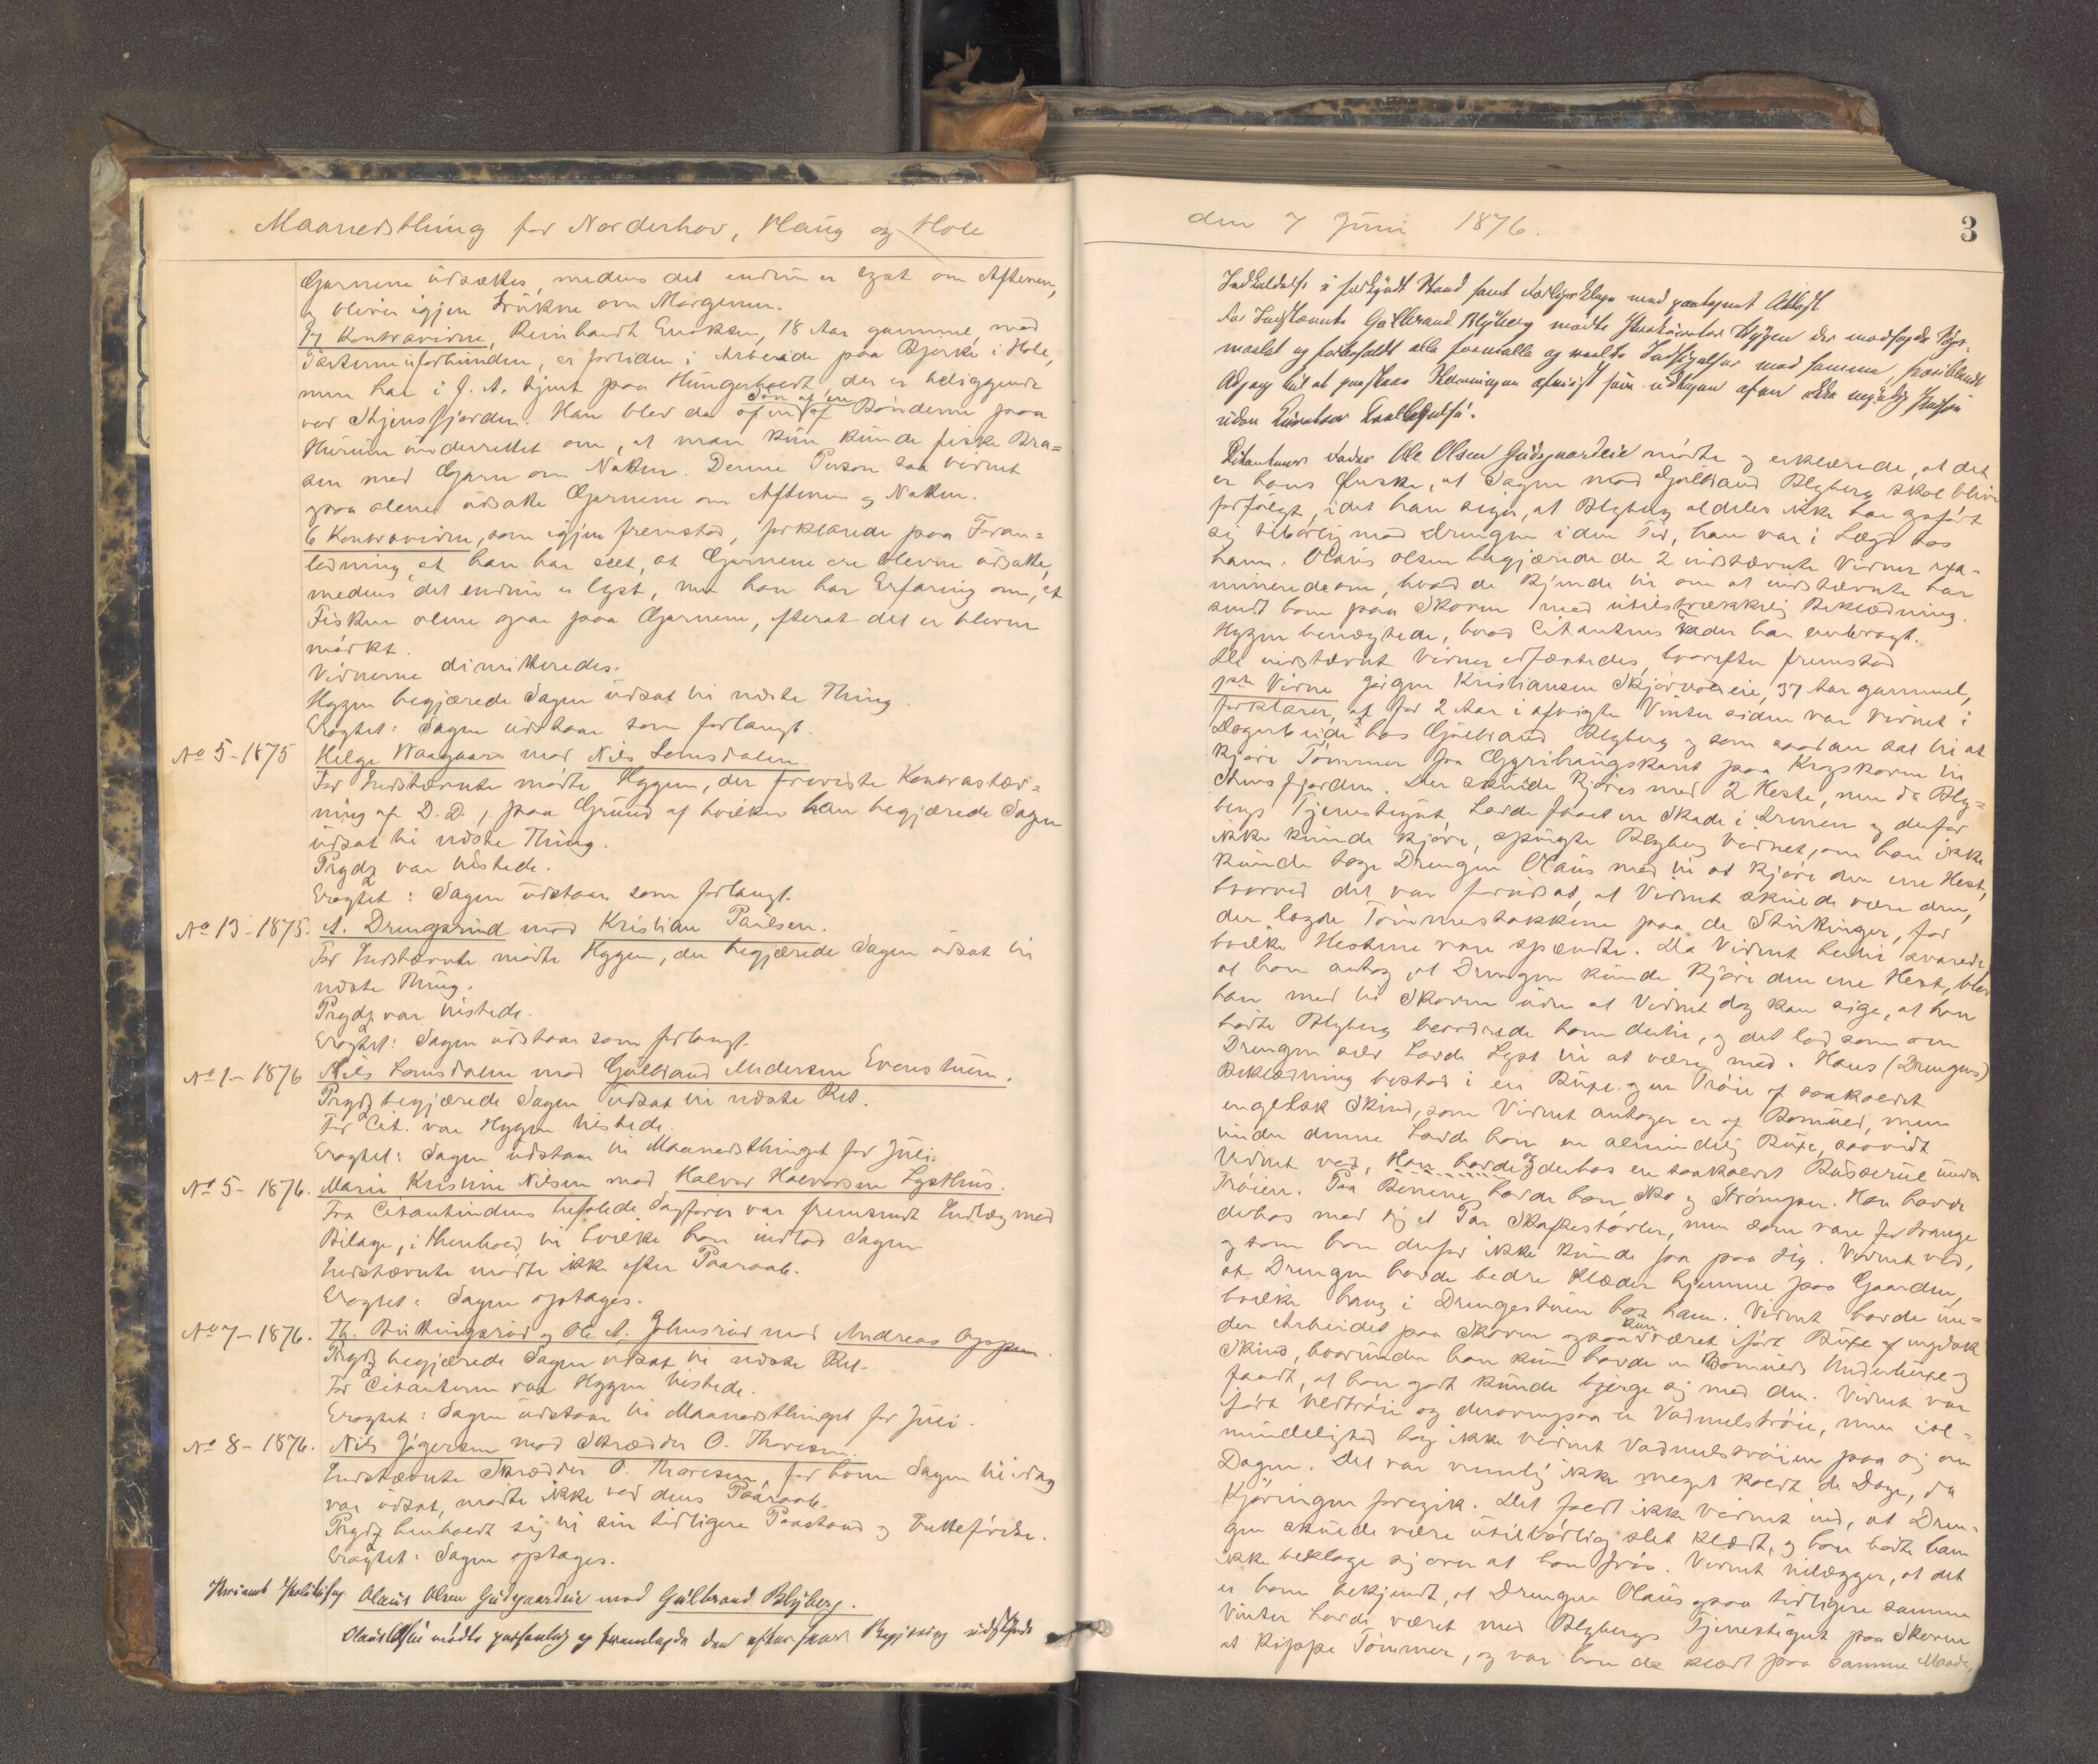 Maanedsthing for Norderhov, Haug og Hole
Garnene udsættes, medens det endnu er lyst om Aftenen,
og bliver igjen trukne om Morgenen.
7de Kontravidne, Reinhardt Eriksen, 18 Aar gammel, med
Parterne uforbunden, er fortiden i Arbeide paa Bjerke i Hole,
men har i f. A. tjent paa Hungerholdt, der er beliggende
ved Stensfjorden. Han blev da af en Søn af en af Bønderne paa
Hurum underrettet om, at man kun kunde fiske Bra=
sen med Garn om Natten. Denne Person saa Vidnet
gaa alene udsætte Garnene om Aftenen og Natten.
6 Kontravidne, som igjen fremstod, forklarede paa Foran=
ledning, at han har seet, at Garnene ere blevne udsatte,
medens det endnu er lyst, men han har Erfaring om, at
Fisken alene gaar paa Garnene, efterat det er blevet
mørkt.
Vidnerne dimitteredes.
Hygen begjærede Sagen udsat til næste Thing.
Eragtet: Sagen udstaar som forlangt.
No 5-1875 Helge Waagaard mod Nils Lomsdalen.
For Indstævnte mødte Hygen, der fremviste Kontrastæv=
ning af D.D., paa Grund af hvilken han begjærede Sagen
udsat til næste Thing.
Prydz var tilstede.
Eragtet: Sagen udstaar som forlangt.
No 13-1875. A. Drengsrud mod Kristian Paulsen.
For Indstævnte mødte Hygen, der begjærede Sagen udsat til
næste Thing.
Prydz var tilstede.
Eragtet: Sagen udstaar som forlangt.
No 1-1876 Nils Lomsdalen mod Gulbrand Andersen Evenstuen.
Prydz begjærede Sagen udsat til næste Ret.
For Cit. var Hygen tilstede.
Eragtet: Sagen udstaar til Maanedsthinget for Juli.
No 5-1876. Marie Kristine Nilsen mod Halvor Halvorsen Lysthus.
Fra Citantindens befalede Sagfører var fremsendt Indlæg med
Bilage, i Henhold til hvilke han indlod Sagen
Indstævnte mødte ikke efter Paaraab.
Eragtet: Sagen optages.
No 7-1876. Th. Buttingsrud og Ole A. Johnsrud mod Andreas Oppen.
Prydz begjærede Sagen udsat til næste Ret.
For Citanterne var Hygen tilstede.
Eragtet: Sagen udstaar til Maanedsthinget for Juli.
No 8-1876. Nils Jøgersen mod Skrædder O. Thoresen.
Indstævnte Skrædder O. Thoresen, for hvem Sagen til idag
var udsat, mødte ikke ved dens Paaraab.
Prydz henholdt sig til sin tidligere Paastand og Retteførelse.
Eragtet: Sagen optages.
Privat Politisag Olaus Olsen Gudsgaardeie mod Gulbrand Blyberg.
Olaus Olsen mødte personlig og fremlagde den efter Begjæring udstedte
den 7 Juni 1876.
3
Indkaldelse i forkyndt Stand samt Forligsklage med paategnet Attest
For Indstævnte Gulbrand Blyberg mødte Prokurator Hygen der modsagde Søgs-
maalet og forbeholdt alle formelle og reelle Indsigelser mod samme, specielt
Adgang til at paastaa Stævningen afvist som udtagen af en ikke myndig Person
uden Kurators Tilladelse.
Citantens Fader Ole Olsen Gudsgaardeie mødte og erklærede, at det
er hans Ønske, at Sagen mod Gulbrand Blyberg skal blive
forfulgt, idet han siger, at Blyberg aldeles ikke har opført
sig tilbørlig mod Drengen i den Tid, han var i Lægd hos
ham. Olaus Olsen begjærede de 2 indstævnte Vidner exa=
minerede om, hvad de kjende til om at indstævnte har
sendt ham paa Skoven med utilstrækkelig Beklædning.
Hygen benægtede, hvad Citantens Fader har anbragt.
De indstævnte Vidner edfæstedes, hvorefter fremstod
1ste Vidne Jørgen Kristiansen Skjærvoldeie, 37 Aar gammel,
forklarer, at for 2 Aar i afvigte Vinter siden var Vidnet i
Dagarbeide hos Gulbrand Blyberg og som saadan sat til at
kjøre Tømmer fra Gyrihaugskant paa Krogskoven til
Stensfjorden. Der skulde kjøres med 2 Heste, men da Bly=
bergs Tjenestegut havde faaet en Skade i Armen og derfor
ikke kunde kjøre, spurgte Blyberg Vidnet, om han ikke
kunde tage Drengen Olaus med til at kjøre den ene Hest,
hvorved det var forudsat, at Vidnet skulde være den,
der lagde Tømmerstokkene paa de Stuttinger, for
hvilke Hestene vare spændte. Da Vidnet hertil svarede
at han antog, at Drengen kunde kjøre den ene Hest, blev
han med til Skoven uden at Vidnet dog kan sige, at han
hørte Blyberg beordrede ham dertil, og det lod som om
Drengen selv havde Lyst til at være med. Hans (Drengens)
Beklædning bestod i en Buxe og en Trøie af saakaldt
engelsk Skind, som Vidnet antager er af Bomuld, men
under denne havde han en almindelig Buxe, saavidt
Vidnet ved, Han havde og derhos en saakaldt Busserul under
Trøien. Paa Benene havde han Sko og Strømper. Han havde
derhos med sig et Par Skaftestøvler, men som vare for trange
og som han derfor ikke kunde faa paa sig. Vidnet ved,
at Drengen havde bedre Klæder hjemme paa Gaarden,
hvilke hang i Drengestuen hos ham. Vidnet havde un=
der Arbeidet paa Skoven ogsaa kun været iført Buxe af engelsk
Skind, hvorunder han kun havde en Bomulds Underbuxe og
fandt, at han godt kunde bjerge sig med den. Vidnet var
iført Vesttrøie og derovenpaa en Vadmelstrøie, men i al=
mindelighed tog ikke Vidnet Vadmelstrøien paa sig om
Dagen. Det var nemlig ikke meget koldt de Dage, da
Kjøringen foregik. Det faldt ikke Vidnet ind, at Dren=
gen skulde være utilbørlig slet klædt, og han hørte ham
ikke beklage sig over at han frøs. Vidnet tillægger, at det
er ham bekjendt, at Drengen Olaus ogsaa tidligere samme
Vinter havde været med Blybergs Tjenestegut paa Skoven
at kippe Tømmer, og var han da klædt paa samme Maade,